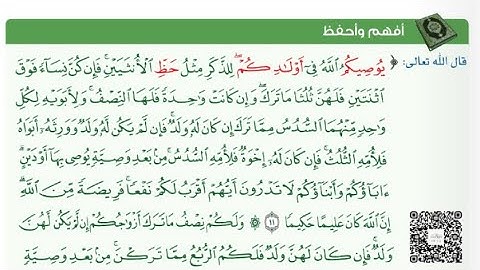 أفهم وأحفظ
قال الله تعالى: ﴿ يُوصِيكُمُ ٱللَّهُ فِيٓ أَوْلَٰدِكُمۡۖ لِلذَّكَرِ مِثۡلُ حَظِّ ٱلۡأُنثَيَيۡنِۚ فَإِن كُنَّ نِسَآءٗ فَوۡقَ
ٱثۡنَتَيۡنِ فَلَهُنَّ ثُلُثَا مَا تَرَكَۖ وَإِن كَانَتۡ وَٰحِدَةٗ فَلَهَا ٱلنِّصۡفُۚ وَلِأَبَوَيۡهِ لِكُلِّ
وَٰحِدٖ مِّنۡهُمَا ٱلسُّدُسُ مِمَّا تَرَكَ إِن كَانَ لَهُۥ وَلَدٞۚ فَإِن لَّمۡ يَكُن لَّهُۥ وَلَدٞ وَوَرِثَهُۥٓ أَبَوَاهُ
فَلِأُمِّهِ ٱلثُّلُثُۚ فَإِن كَانَ لَهُۥٓ إِخۡوَةٞ فَلِأُمِّهِ ٱلسُّدُسُۚ مِنۢ بَعۡدِ وَصِيَّةٖ يُوصِي بِهَآ أَوۡ دَيۡنٍۗ
ءَابَآؤُكُمۡ وَأَبۡنَآؤُكُمۡ لَا تَدۡرُونَ أَيُّهُمۡ أَقۡرَبُ لَكُمۡ نَفۡعٗاۚ فَرِيضَةٗ مِّنَ ٱللَّهِۗ
إِنَّ ٱللَّهَ كَانَ عَلِيمًا حَكِيمٗا ١١ وَلَكُمۡ نِصۡفُ مَا تَرَكَ أَزۡوَٰجُكُمۡ إِن لَّمۡ يَكُن لَّهُنَّ
وَلَدٞۚ فَإِن كَانَ لَهُنَّ وَلَدٞ فَلَكُمُ ٱلرُّبُعُ مِمَّا تَرَكۡنَۚ مِنۢ بَعۡدِ وَصِيَّةٖ